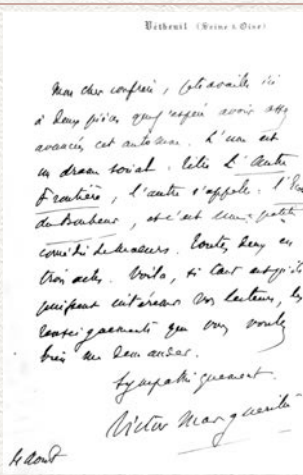 Vétheuil (Seine & Oise)
Mon cher confrère, je travaille ici
à deux pièces que j'espère avoir assez
avancées cet automne. L'une est
un drame social, titre L'Autre
Frontière, l'autre s'appelle : l'
du Bonheur, et c'est une petite
comédie de mœurs. Toutes deux en
trois actes. Voilà, si tant est qu'ils
puissent intéresser vos lecteurs, les
renseignements que vous voulez
bien me demander.
Sympathiquement.
Victor Margueritte
août